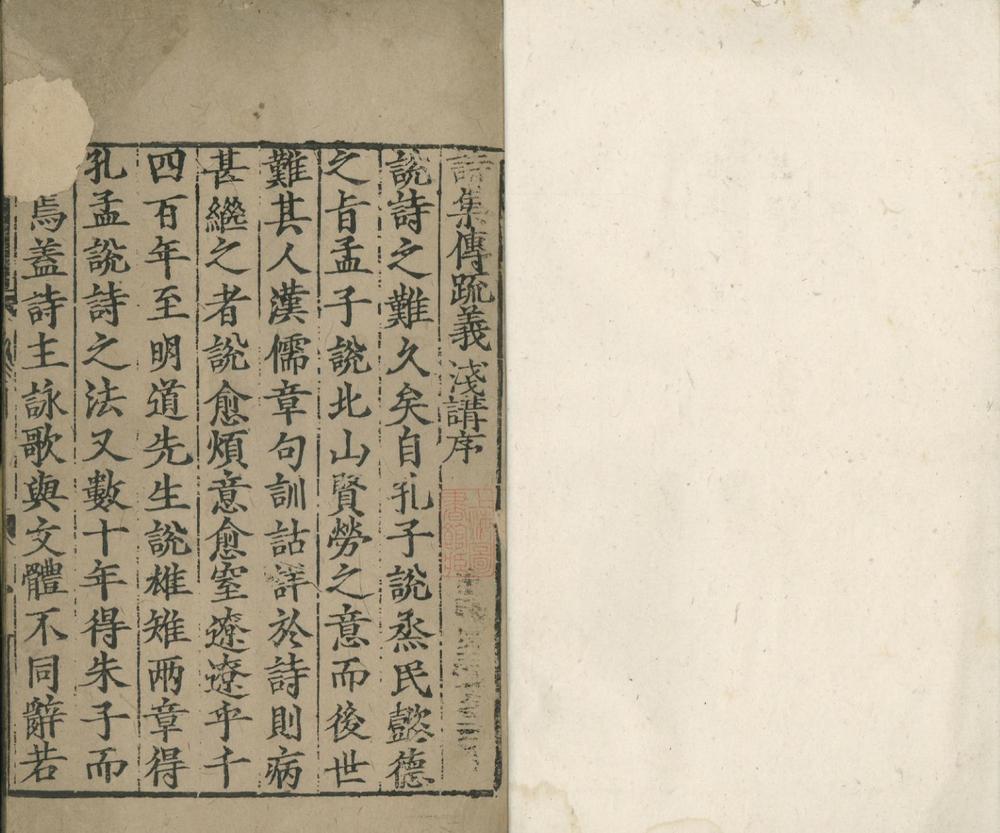 詩集傳疏義淺講序
說詩之難久矣自孔子說烝民懿德
之旨孟子說北山賢勞之意而後世
難其人漢儒章句訓詁詳於詩則病
甚繼之者說愈煩意愈窒遼遼乎千
四百年至明道先生說雄雉兩章得
孔孟說詩之法又數十年得朱子而
焉蓋詩主詠歌與文體不同辭若